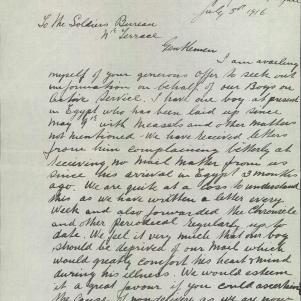 July 5th 1916
To The Soldiers Bureau
Nth Terrace
Gentlemen
I am availing
myself of your generous offer to seek out
information on behalf of our Boys on
Active Service. I have one boy at present
in Egypt who has been laid up since
May 9th with Measels and other matters
not mentioned - We have received letters
from him complaining betterly at
receiving no Mail Matter from us
since his arrival in Egypt 3 months
ago. We are quite at a loss to understand
this as we have written a letter every
Week and also forwarded the Chronicle
and other periodicals regularly up to
date. We feel it very much that our boy
should be deprived of our Mail which
would greatly comfort his heart & mind
during his illness. We would esteem
it a great favour if you could ascertain
the Cause of nondelivery as we are now